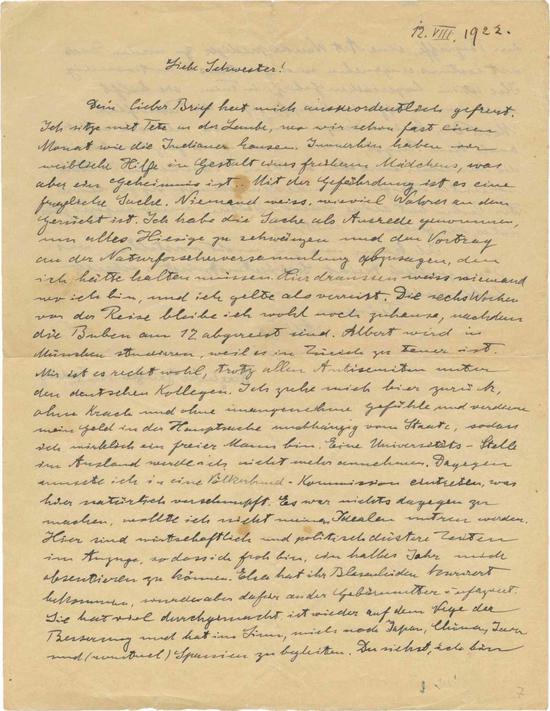 12. VIII. 1922.
Liebe Schwester!
Dein lieber Brief hat mich ausserordentlich gefreut.
Ich sitze mit Tete in der Laube, wo wir schon fast einen
Monat wie die Indianer hausen. Immerhin haben wir
weibliche Hilfe in Gestalt eines früheren Mädchens, was
aber ein Geheimnis ist. Mit der Gefährdung ist es eine
fragliche Sache. Niemand weiss, wieviel Wahres an dem
Gerücht ist. Ich habe die Sache als Ausrede genommen,
um alles Hiesige zu schwänzen und den Vortrag
an der Naturforscherversammlung abzusagen, den
ich hätte halten müssen. Hier draussen weiss niemand
wo ich bin, und ich gelte als verreist. Die sechs Wochen
vor der Reise bleibe ich wohl noch zuhause, nachdem
die Buben am 17 abgereist sind. Albert wird in
München studieren, weil es in Zürich zu teuer ist.
Mir ist es recht wohl, trotz allen Antisemiten unter
den deutschen Kollegen. Ich ziehe mich hier zurück,
ohne Krach und ohne unangenehme Gefühle und verdiene
mein Geld in der Hauptsache unabhängig vom Staate, sodass
ich wirklich ein freier Mann bin. Eine Universitäts-Stelle
im Ausland werde ich nicht mehr annehmen. Dagegen
musste ich in eine Völkerbund-Kommission eintreten, was
hier natürlich verschnupft. Es war nichts dagegen zu
machen, wollte ich nicht meinen Idealen untreu werden.
Hier sind wirtschaftlich und politisch düstere Zeiten
im Anzuge, sodass ich froh bin, ein halbes Jahr mich
absentieren zu können. Elsa hat ihr Blasenleiden
bekommen, wurde aber dafür an der Gebärmutter
Sie hat viel durchgemacht, ist wieder auf dem Wege der
Besserung und hat im Sinn, mich nach Japan, China, Java
und (eventuel) Spanien zu begleiten. Du siehst, ich bin
7